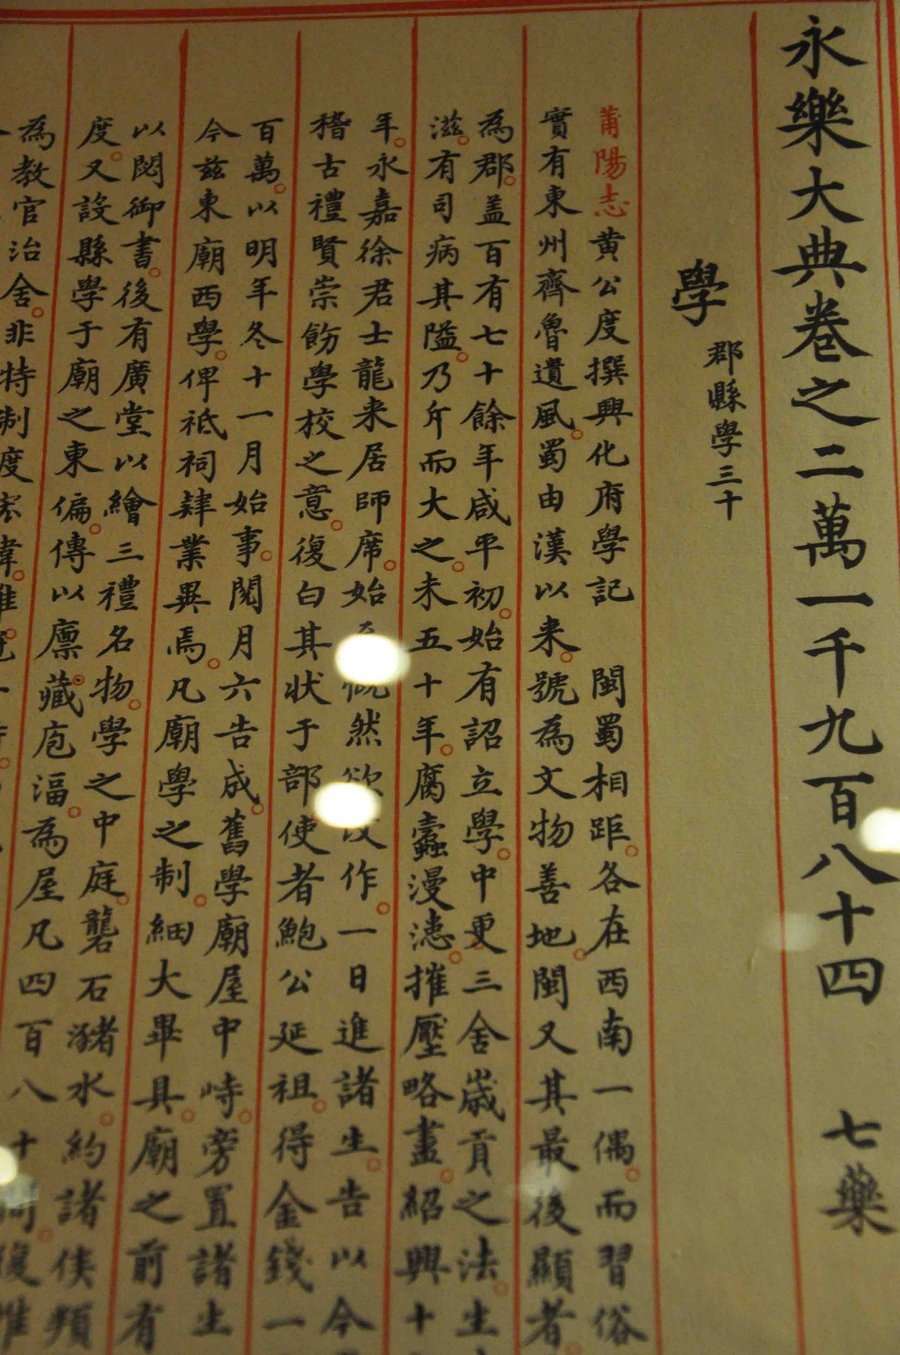 永樂大典卷之二萬一千九百八十四 七藥
學 郡縣學三十
莆陽志黄公度撰興化府學記 閩蜀相距各在西南一偶而習俗
實有東州齊魯遺風蜀由漢以来號為文物善地閩又其最後顯者
為郡盖百有七十餘年咸平初始有詔立學中更三舍嵗貢之法生
滋有司病其隘乃斥而大之未五十年腐蠧漫漶摧壓略盡紹興十
年永嘉徐君士龍来居師席始 慨然欲改作一日進諸生告以今
稽古禮賢崇飭學校之意復白其状于部使者鮑公延祖得金錢一
百萬以明年冬十一月始事閲月六告成舊學廟屋中峙旁置諸生
今兹東廟西學俾祗祠肄業異焉凡廟學之制細大畢具廟之前有
以閟御書後有廣堂以繪三禮名物學之中庭礱石豬水約諸侯頖
度又設縣學于廟之東偏傅以廪藏庖湢為屋凡四百八十
為教官治舍非特制度宏